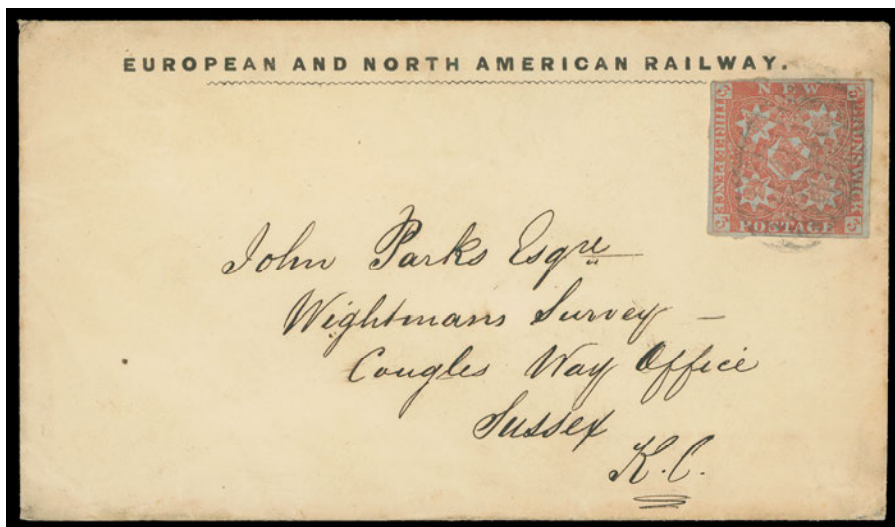 EUROPEAN AND NORTH AMERICAN RAILWAY.
NEW
BRUNSWICK
POSTAGE
THREE PENCE
3
3
3
3
John Parks Esqre
Wightmans Survey –
Cougles Way Office
Sussex
K.C.